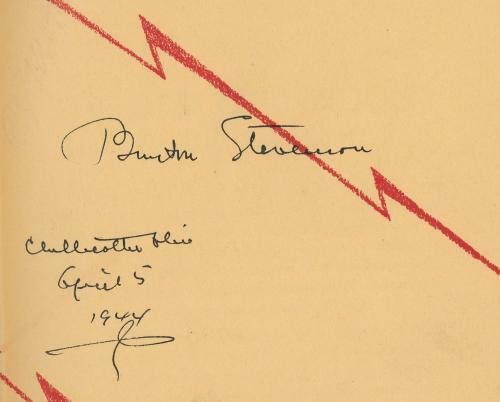 Burton Stevenson
Chillicothe Ohio
April 5
1944